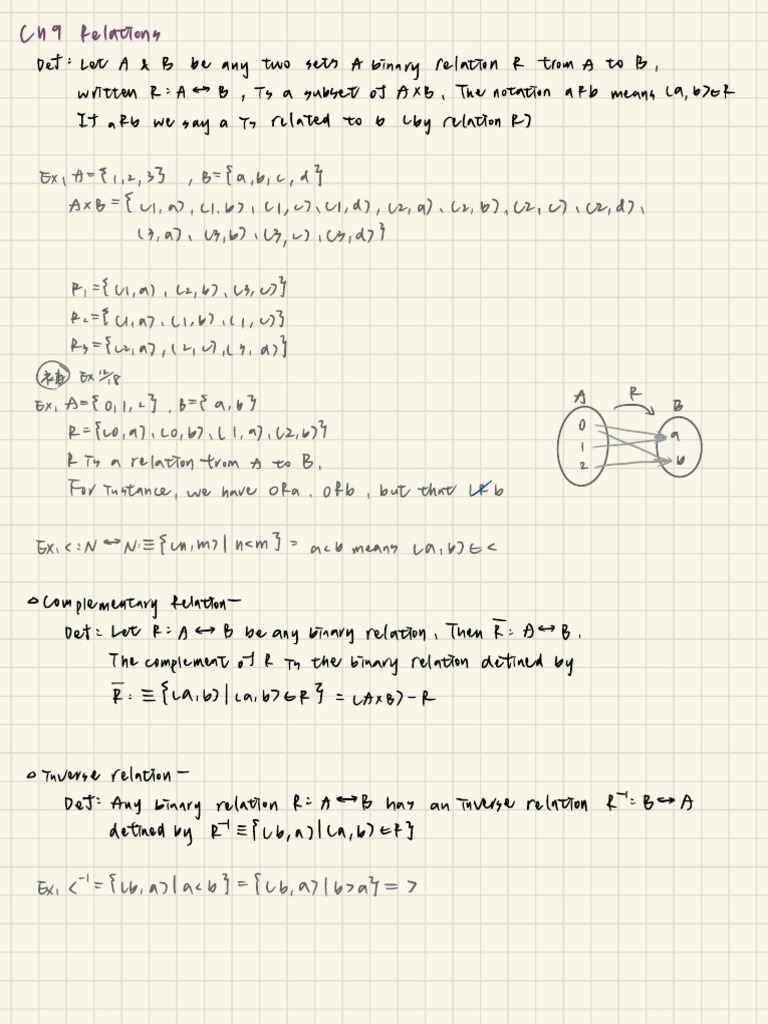 Ch9 Relations
Def: Let A & B be any two sets A binary relation R from A to B,
written R: A ↔ B, is a subset of A×B, The notation aRb means (a,b)∈R
If aRb we say a is related to b (by relation R)
Ex, A={1,2,3} , B={a,b,c,d}
A×B={(1,a),(1,b),(1,c),(1,d),(2,a),(2,b),(2,c),(2,d),
(3,a),(3,b),(3,c),(3,d)}
R₁={(1,a),(2,b),(3,c)}
R₂={(1,a),(1,b),(1,c)}
R₃={(2,a),(2,c),(3,d)}
Ex 12/18
Ex, A={0,1,2}, B={a,b}
R={(0,a),(0,b),(1,a),(2,b)}
R is a relation from A to B,
For instance, we have 0Ra, 0Rb, but that 1R̸b
A R B
0
1 a
2 b
Ex, <: N ↔ N:≡{(n,m)|n<m} = a<b means (a,b)∈<
Complementary Relation—
Def: Let R: A↔B be any binary relation, Then R̅: A↔B,
The complement of R is the binary relation defined by
R̅:≡{(a,b)|(a,b)∈R} = (A×B)-R
Inverse relation—
Def: Any binary relation R: A↔B has an inverse relation R⁻¹: B↔A
defined by R⁻¹≡{(b,a)|(a,b)∈R}
Ex, <⁻¹={(b,a)|a<b}={(b,a)|b>a}= >